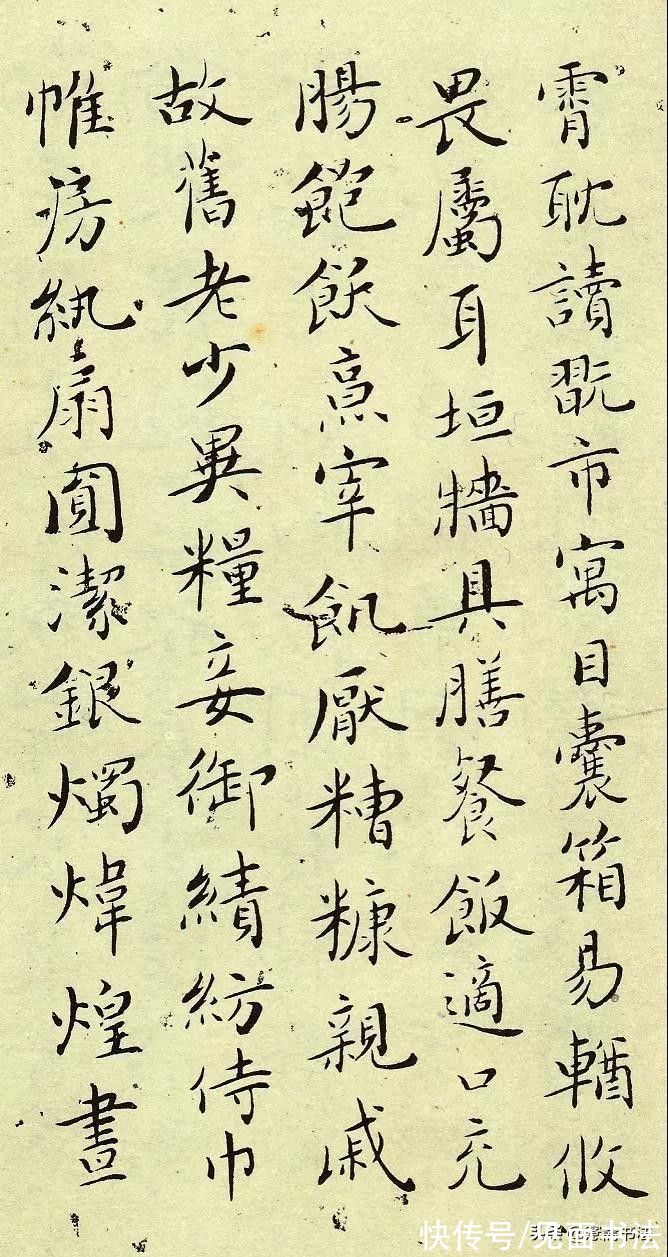 霄耽讀翫市寓目囊箱易輶攸
畏屬耳垣牆具膳飡飯適口充
腸飽飫烹宰飢厭糟糠親戚
故舊老少異糧妾御績紡侍巾
帷房紈扇圓潔銀燭煒煌晝
快传号/见面书法